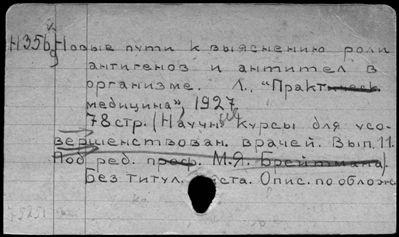 Н356 Новые пути к выяснению роли
антигенов и антител в
организме. Л., "Практ.
медицина", 1927.
78 стр. (Научн. курсы для усо-
вершенствован. врачей. Вып. 11.
Под ред. проф. М.Я. Брейтмана).
Без титул. листа. Опис. по облож.